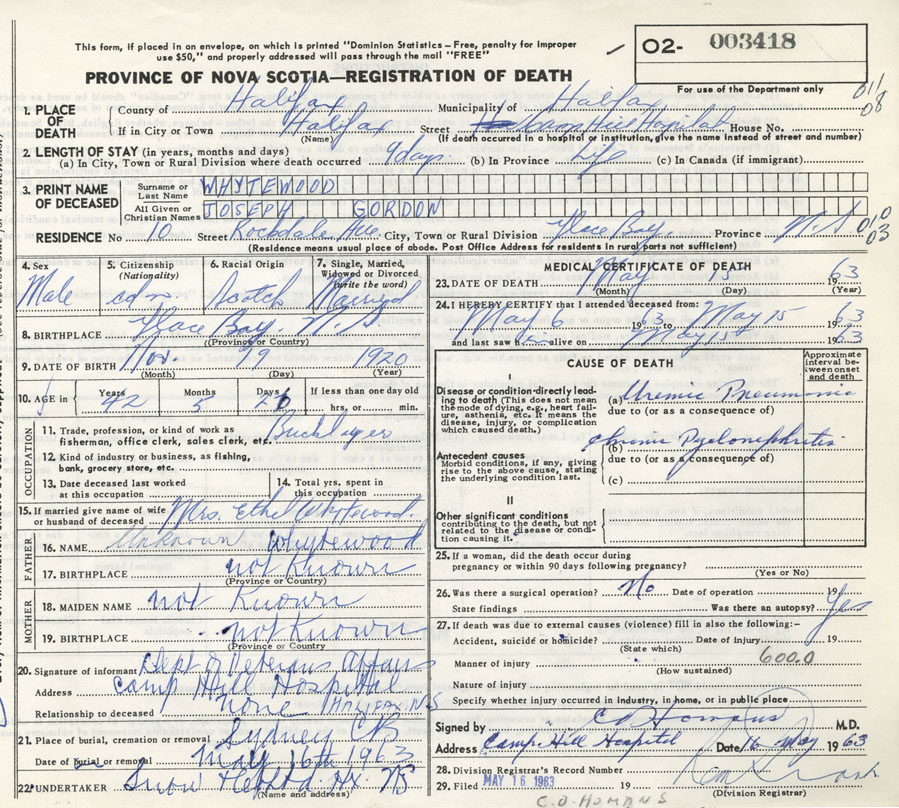 This form, if placed in an envelope, on which is printed "Dominion Statistics – Free, penalty for improper
use $50," and properly addressed will pass through the mail "FREE"
O2- 003418
PROVINCE OF NOVA SCOTIA—REGISTRATION OF DEATH
For use of the Department only
1. PLACE OF DEATH
County of Halifax Municipality of Halifax
If in City or Town Halifax Street Camp Hill Hospital House No.
(Name) (If death occurred in a hospital or institution, give the name instead of street and number)
2. LENGTH OF STAY (in years, months and days)
(a) In City, Town or Rural Division where death occurred 9 days. (b) In Province Life (c) In Canada (if immigrant)
3. PRINT NAME OF DECEASED
Surname or Last Name WHYTEWOOD
All Given or Christian Names JOSEPH GORDON
RESIDENCE No 10 Street Rockdale Ave. City, Town or Rural Division Glace Bay. Province N.S
(Residence means usual place of abode. Post Office Address for residents in rural parts not sufficient)
4. Sex Male
5. Citizenship (Nationality) cdn.
6. Racial Origin Scotch
7. Single, Married, Widowed or Divorced (write the word) Married
8. BIRTHPLACE Glace Bay. N.S
(Province or Country)
9. DATE OF BIRTH Nov. 19 1920
(Month) (Day) (Year)
10. AGE in Years 42 Months 5 Days 26 If less than one day old
hrs, or min.
OCCUPATION
11. Trade, profession, or kind of work as fisherman, office clerk, sales clerk, etc. Bricklayer
12. Kind of industry or business, as fishing, bank, grocery store, etc.
13. Date deceased last worked at this occupation
14. Total yrs. spent in this occupation
15. If married give name of wife or husband of deceased Mrs. Ethel Whytewood.
FATHER
16. NAME Unknown Whytewood
17. BIRTHPLACE not Known
(Province or Country)
MOTHER
18. MAIDEN NAME not Known
19. BIRTHPLACE not Known
(Province or Country)
20. Signature of informant Dept of Veterans Affairs
Address Camp Hill Hospital
HALIFAX NS
Relationship to deceased none
21. Place of burial, cremation or removal Sydney CB
Date of burial or removal May 16th 1963
22. UNDERTAKER Snow Hfx. NS
(Name and address)
MEDICAL CERTIFICATE OF DEATH
23. DATE OF DEATH May 15 1963
(Month) (Day) (Year)
24. I HEREBY CERTIFY that I attended deceased from:
May 6 1963 to May 15 1963
and last saw him alive on May 15 1963
CAUSE OF DEATH
Approximate interval between onset and death
I
Disease or condition directly leading to death (This does not mean the mode of dying, e.g., heart failure, asthenia, etc. It means the disease, injury, or complication which caused death.)
(a) Uremic Pneumonia
due to (or as a consequence of)
Antecedent causes
Morbid conditions, if any, giving rise to the above cause, stating the underlying condition last.
(b) chronic Pyelonephritis
due to (or as a consequence of)
(c)
II
Other significant conditions contributing to the death, but not related to the disease or condition causing it.
25. If a woman, did the death occur during
pregnancy or within 90 days following pregnancy?
(Yes or No)
26. Was there a surgical operation? No Date of operation 19
State findings Was there an autopsy? Yes
27. If death was due to external causes (violence) fill in also the following:–
Accident, suicide or homicide? Date of injury 19
(State which)
600.0
Manner of injury
(How sustained)
Nature of injury
Specify whether injury occurred in industry, in home, or in public place
Signed by C D Homans M.D.
Address Camp Hill Hospital Date 16 May 1963
28. Division Registrar's Record Number
29. Filed MAY 16 1963 19
(Division Registrar)
C.D. HOMANS